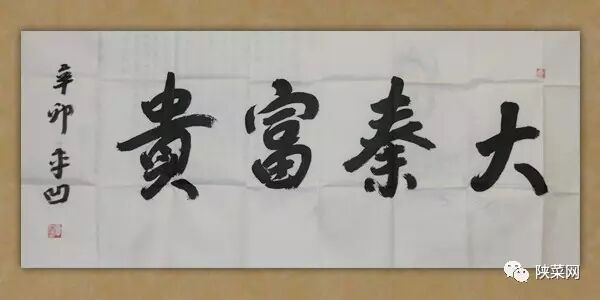 大秦富貴
辛卯 平凹
陕菜网